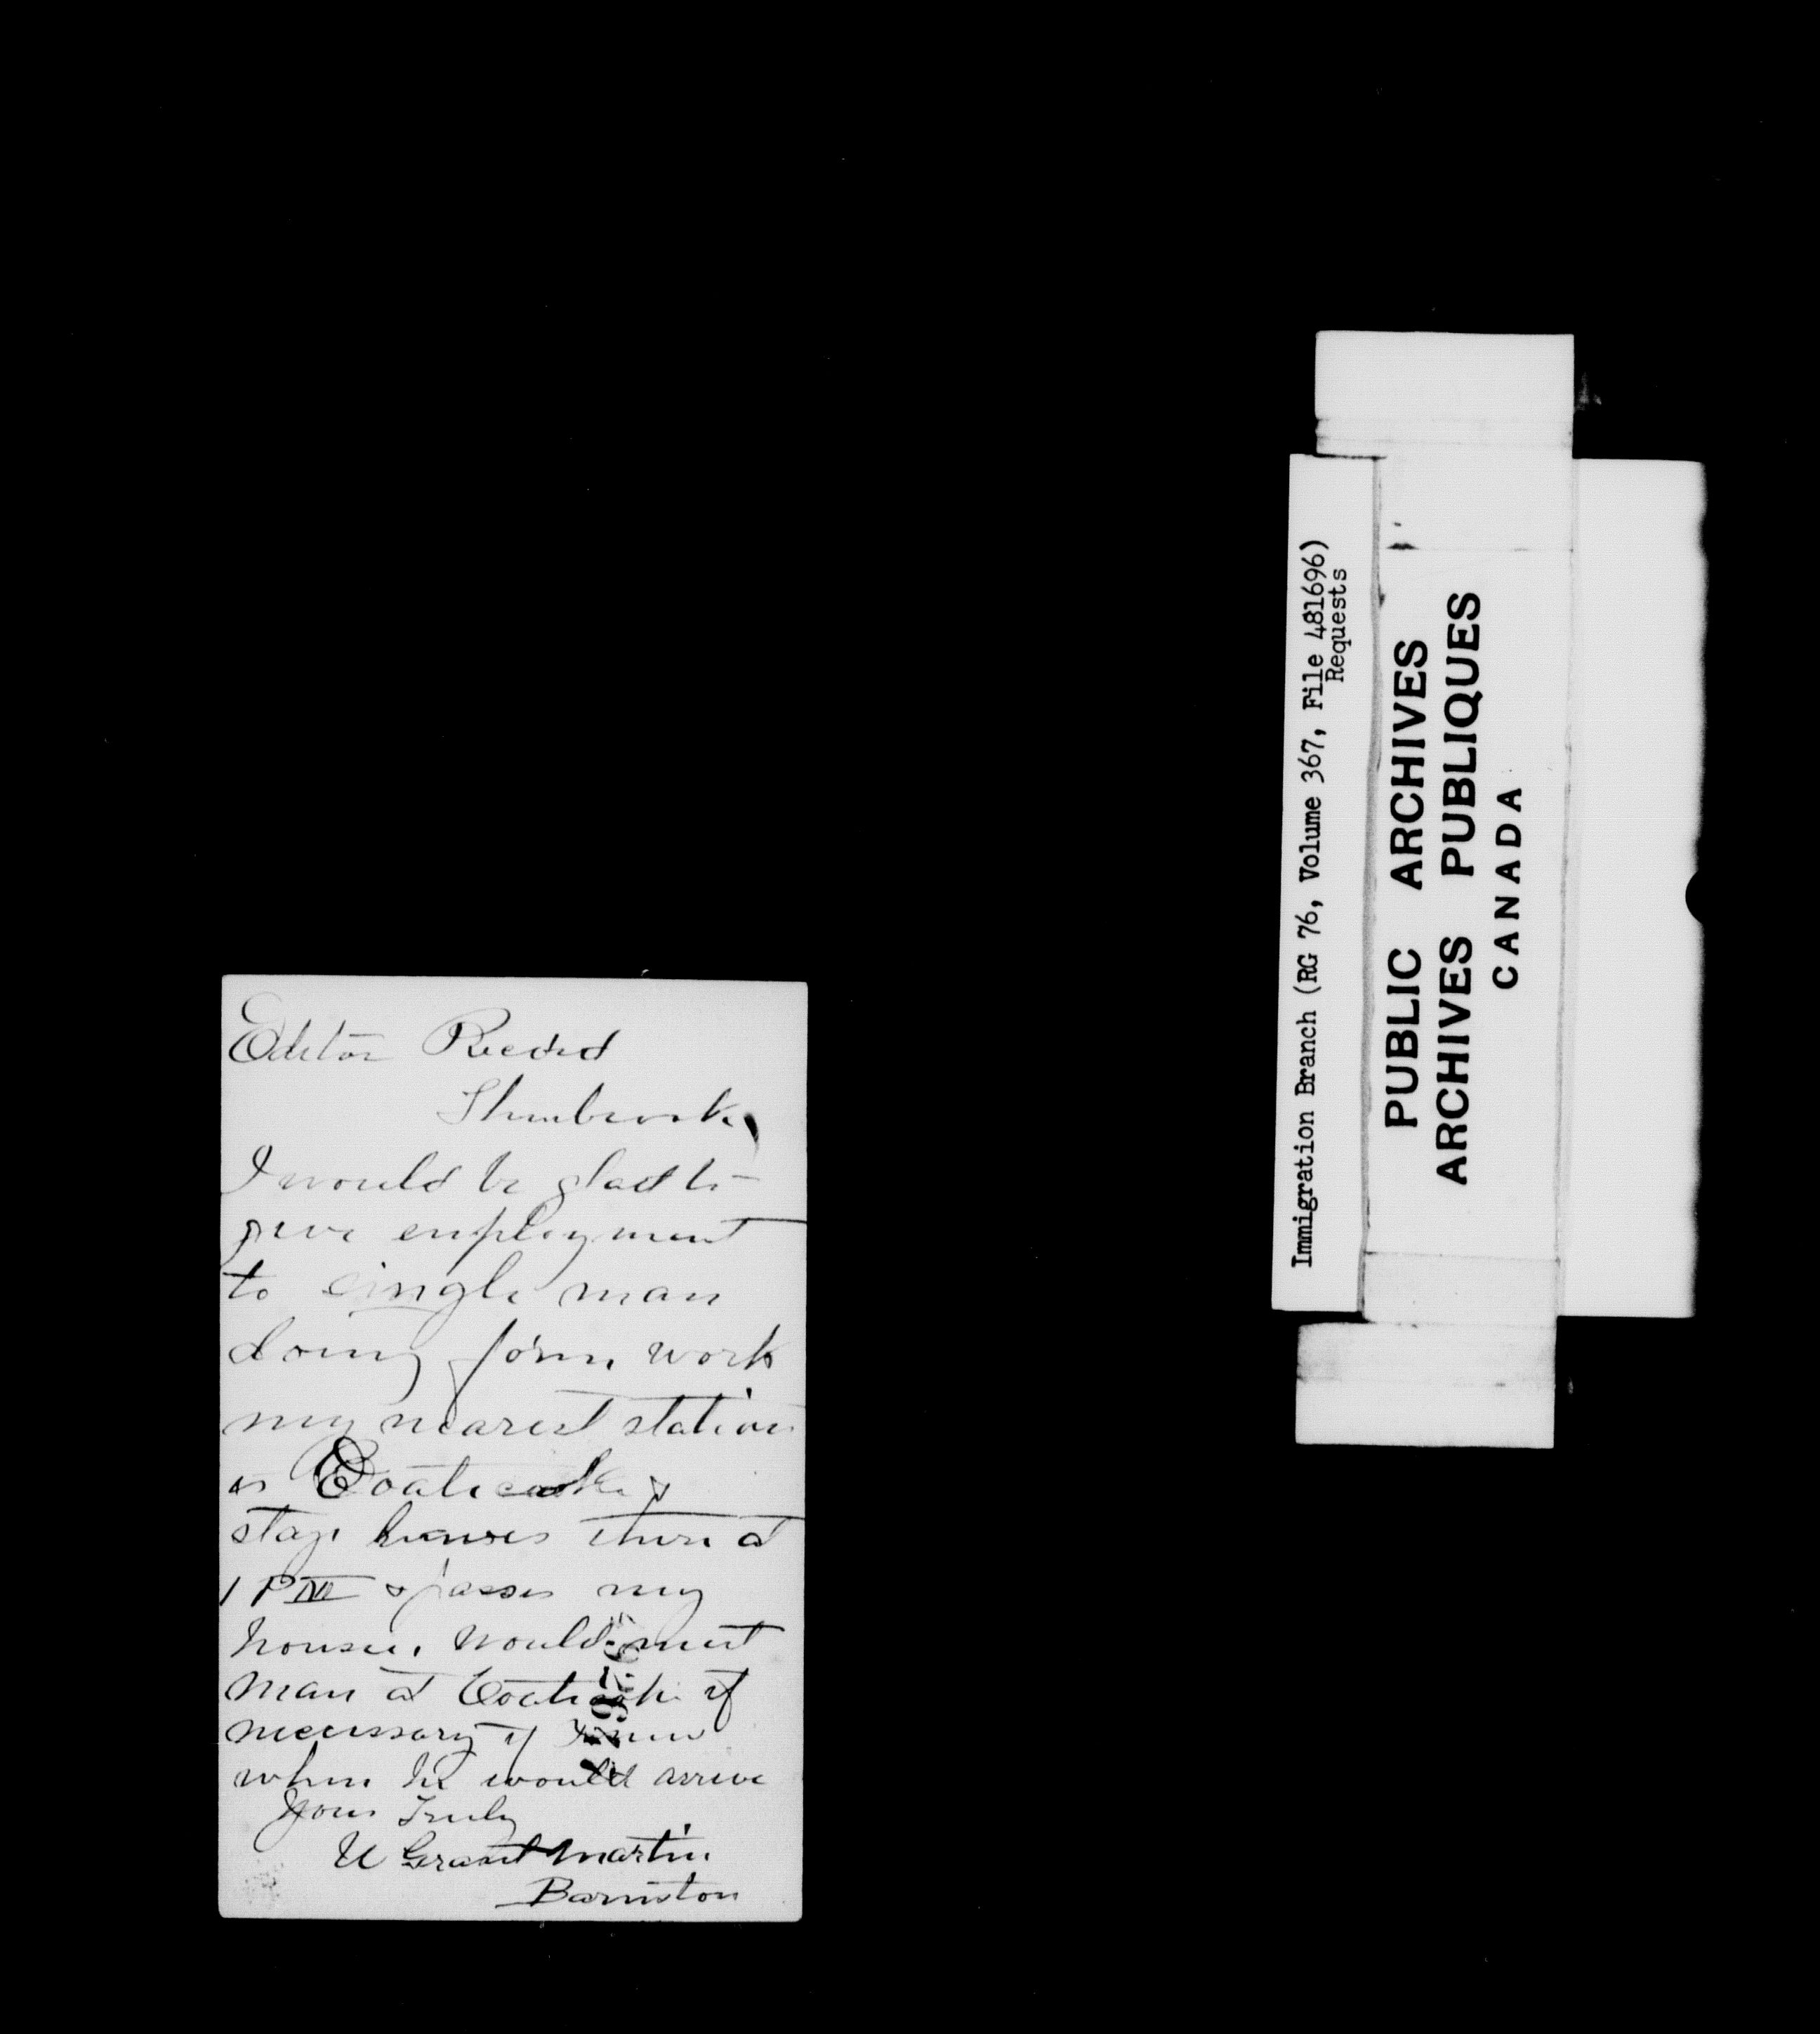 Editor Record
Sherbrooke
I would be glad to
give employment
to single man
doing farm work
my nearest station
is Coaticook &
stage leaves there at
1 PM & passes my
house. Would meet
man at Coaticook if
necessary if I knew
when he would arrive
Yours Truly
U Grant Martin
Barnston
Immigration Branch (RG 76, Volume 367, File 481696)
Requests
PUBLIC ARCHIVES
ARCHIVES PUBLIQUES
CANADA